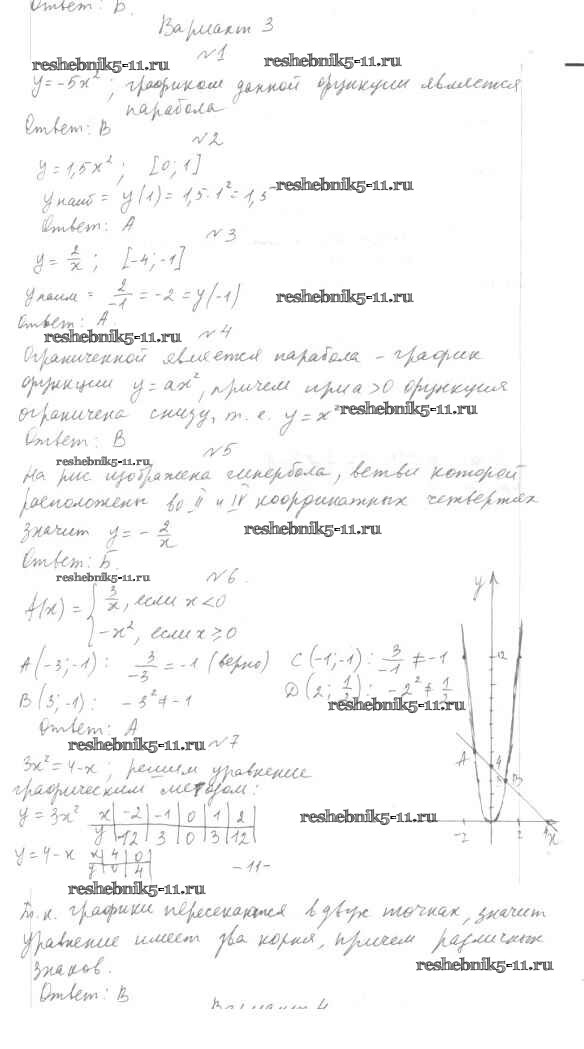 Ответ: Б.
Вариант 3
№1
reshebnik5-11.ru reshebnik5-11.ru
y = -5x²; графиком данной функции является
парабола
Ответ: В
№2
y = 1,5x²; [0; 1]
yнаиб = y(1) = 1,5·1² = 1,5
reshebnik5-11.ru
Ответ: А
№3
y = 2/x; [-4; -1]
yнаим = 2/-1 = -2 = y(-1)
reshebnik5-11.ru
Ответ: А.
reshebnik5-11.ru
№4
Ограниченной является парабола - график
функции y = ax², причем при a > 0 функция
ограничена снизу, т. е. y = x²
reshebnik5-11.ru
Ответ: В
№5
reshebnik5-11.ru
На рис изображена гипербола, ветви которой
расположены во II и IV координатных четвертях
значит y = - 2/x
reshebnik5-11.ru
Ответ: Б.
reshebnik5-11.ru
№6.
A(x) = { 3/x, если x < 0
-x², если x ≥ 0
A(-3; -1): 3/-3 = -1 (верно) C(-1; -1): 3/-1 ≠ -1
B(3; -1): -3² ≠ -1 D(2; 1/2): -2² ≠ 1/2
reshebnik5-11.ru
Ответ: А
reshebnik5-11.ru
№7
3x² = 4-x; решим уравнение
графическим методом:
y = 3x² x -2 -1 0 1 2
y 12 3 0 3 12
reshebnik5-11.ru
y = 4-x x 4 0
y 0 4
-11-
y
12
A
4
B
-2 2 4 x
reshebnik5-11.ru
Т.к. графики пересекаются в двух точках, значит
уравнение имеет два корня, причем различных
знаков.
reshebnik5-11.ru
Ответ: В
Вариант 4